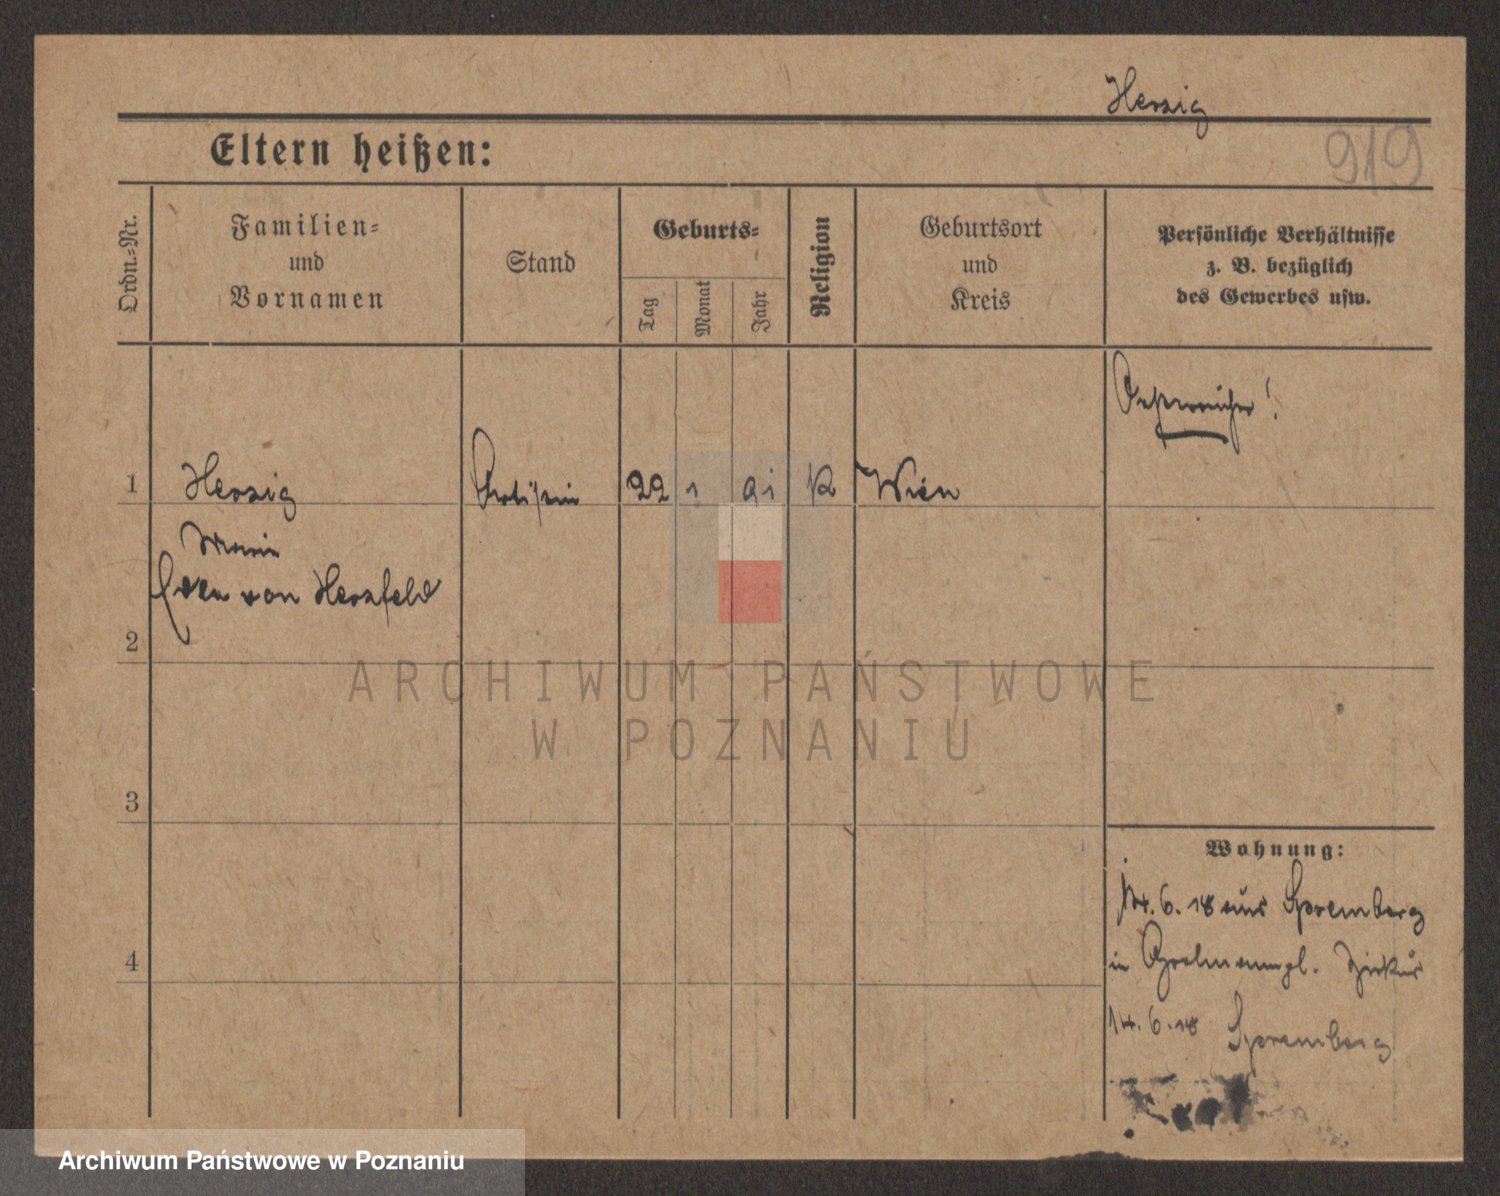 Herzig
919
Eltern heißen:
Ordn.-Nr.
Familien-
und
Vornamen
Stand
Geburts-
Tag
Monat
Jahr
Religion
Geburtsort
und
Kreis
Persönliche Verhältnisse
z. B. bezüglich
des Gewerbes usw.
Oesterreicher!
1 Herzig Artistin 22 1 91 K Wien
Marie
von Herzfeld
2
ARCHIWUM PAŃSTWOWE
W POZNANIU
3
Wohnung:
14. 6. 18 aus Spremberg
4
in Zirkus
14. 6. 18 Spremberg
Archiwum Państwowe w Poznaniu